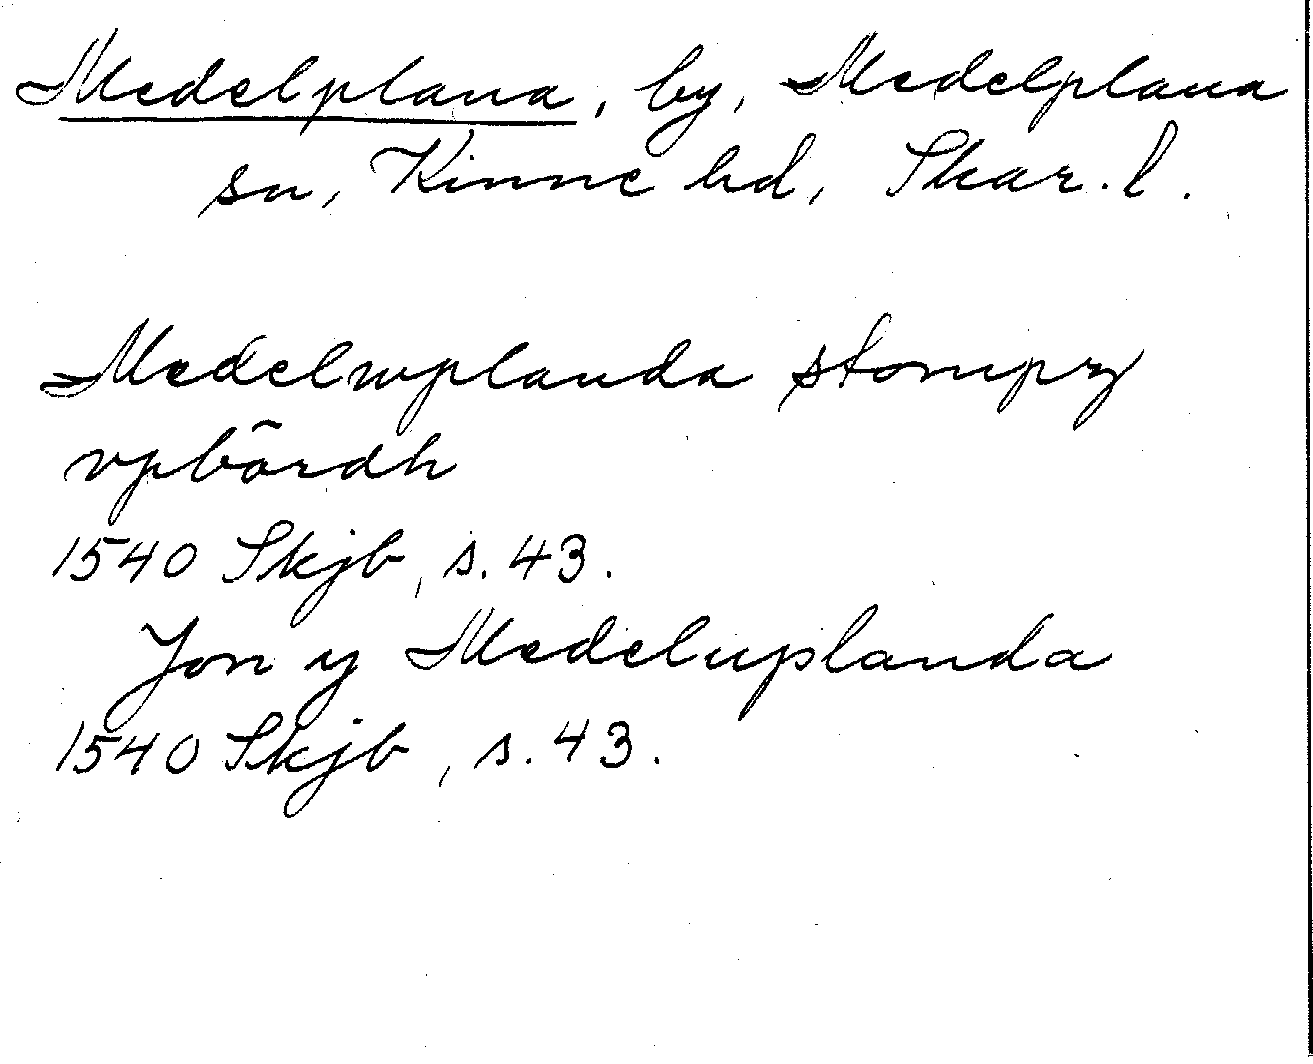 Medelplana, by, Medelplana
sn, Kinne hd, Skar. l.
Medelwplanda stompz
vpbördh
1540 Skjb, s. 43.
Jon y Medeluplanda
1540 Skjb, s. 43.